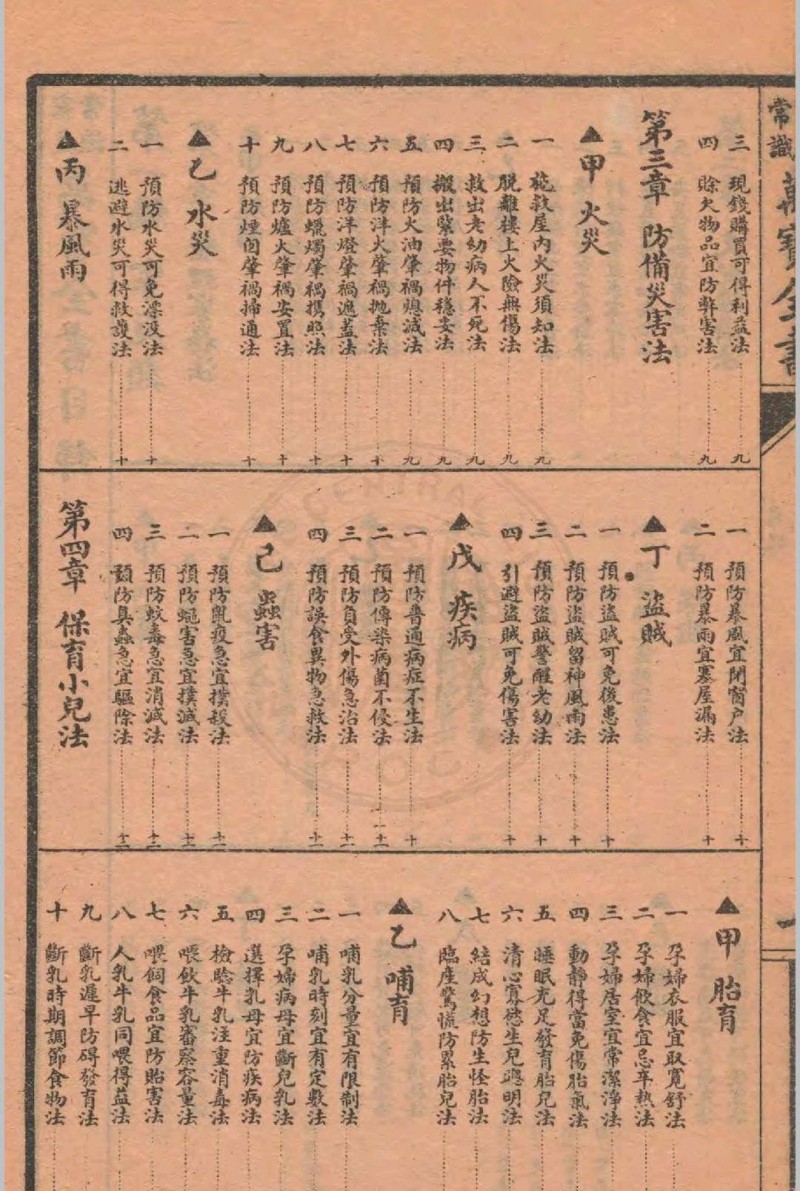 常識萬寶全書
三 現錢購買可得利益法 九
四 賒欠物品宜防弊害法 九
第三章 防備災害法
▲甲 火災
一 施救屋內火災須知法 九
二 脫離樓上火險無傷法 九
三 救出老幼病人不死法 九
四 搬出緊要物件穩妥法 九
五 預防火油肇禍熄滅法 九
六 預防洋火肇禍拋棄法 十
七 預防洋燈肇禍遮蓋法 十
八 預防蠟燭肇禍攜照法 十
九 預防爐火肇禍安置法 十
十 預防煙囪肇禍掃通法 十
▲乙 水災
一 預防水災可免漂沒法 十
二 逃避水災可得救護法 十
▲丙 暴風雨
一 預防暴風宜閉窗户法 十
二 預防暴雨宜塞屋漏法 十
▲丁 盜賊
一 預防盜賊可免後患法 十
二 預防盜賊留神風雨法 十
三 預防盜賊警醒老幼法 十
四 引避盜賊可免傷害法 十
▲戊 疾病
一 預防普通病症不生法 十
二 預防傳染病菌不侵法 十一
三 預防負受外傷急治法 十一
四 預防誤食異物急救法 十一
▲己 蟲害
一 預防鼠疫急宜撲殺法 十一
二 預防蠅害急宜撲滅法 十一
三 預防蚊毒急宜消滅法 十二
四 預防臭蟲急宜驅除法 十二
第四章 保育小兒法
▲甲 胎育
一 孕婦衣服宜取寬舒法
二 孕婦飲食宜忌辛熱法
三 孕婦居室宜常潔淨法
四 動靜得當免傷胎氣法
五 睡眠充足發育胎兒法
六 清心寡慾生兒聰明法
七 結成幻想防生怪胎法
八 臨產驚慌防累胎兒法
▲乙 哺育
一 哺乳分量宜有限制法
二 哺乳時刻宜有定數法
三 孕婦病母宜斷兒乳法
四 選擇乳母宜防疾病法
五 檢驗牛乳注重消毒法
六 喂飲牛乳審察容量法
七 喂飼食品宜防貽害法
八 人乳牛乳同喂得益法
九 斷乳遲早防碍發育法
十 斷乳時期調節食物法